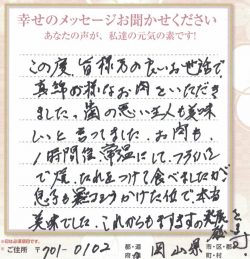 幸せのメッセージお聞かせください
あなたの声が、私達の元気の素です!
この度、皆様方の良いお世話で
真絆の様なお肉をいただき
ました。歯の悪い主人も美味
しいと言ってました。お肉も
1時間位常温にして、フライパン
で焼、たれをつけて食べましたが
息子も
位で、本当
美味でした。これからもますますの発展
を
ご住所 〒701-0102
都・道・府・県 岡山県
市・区・郡
町・村